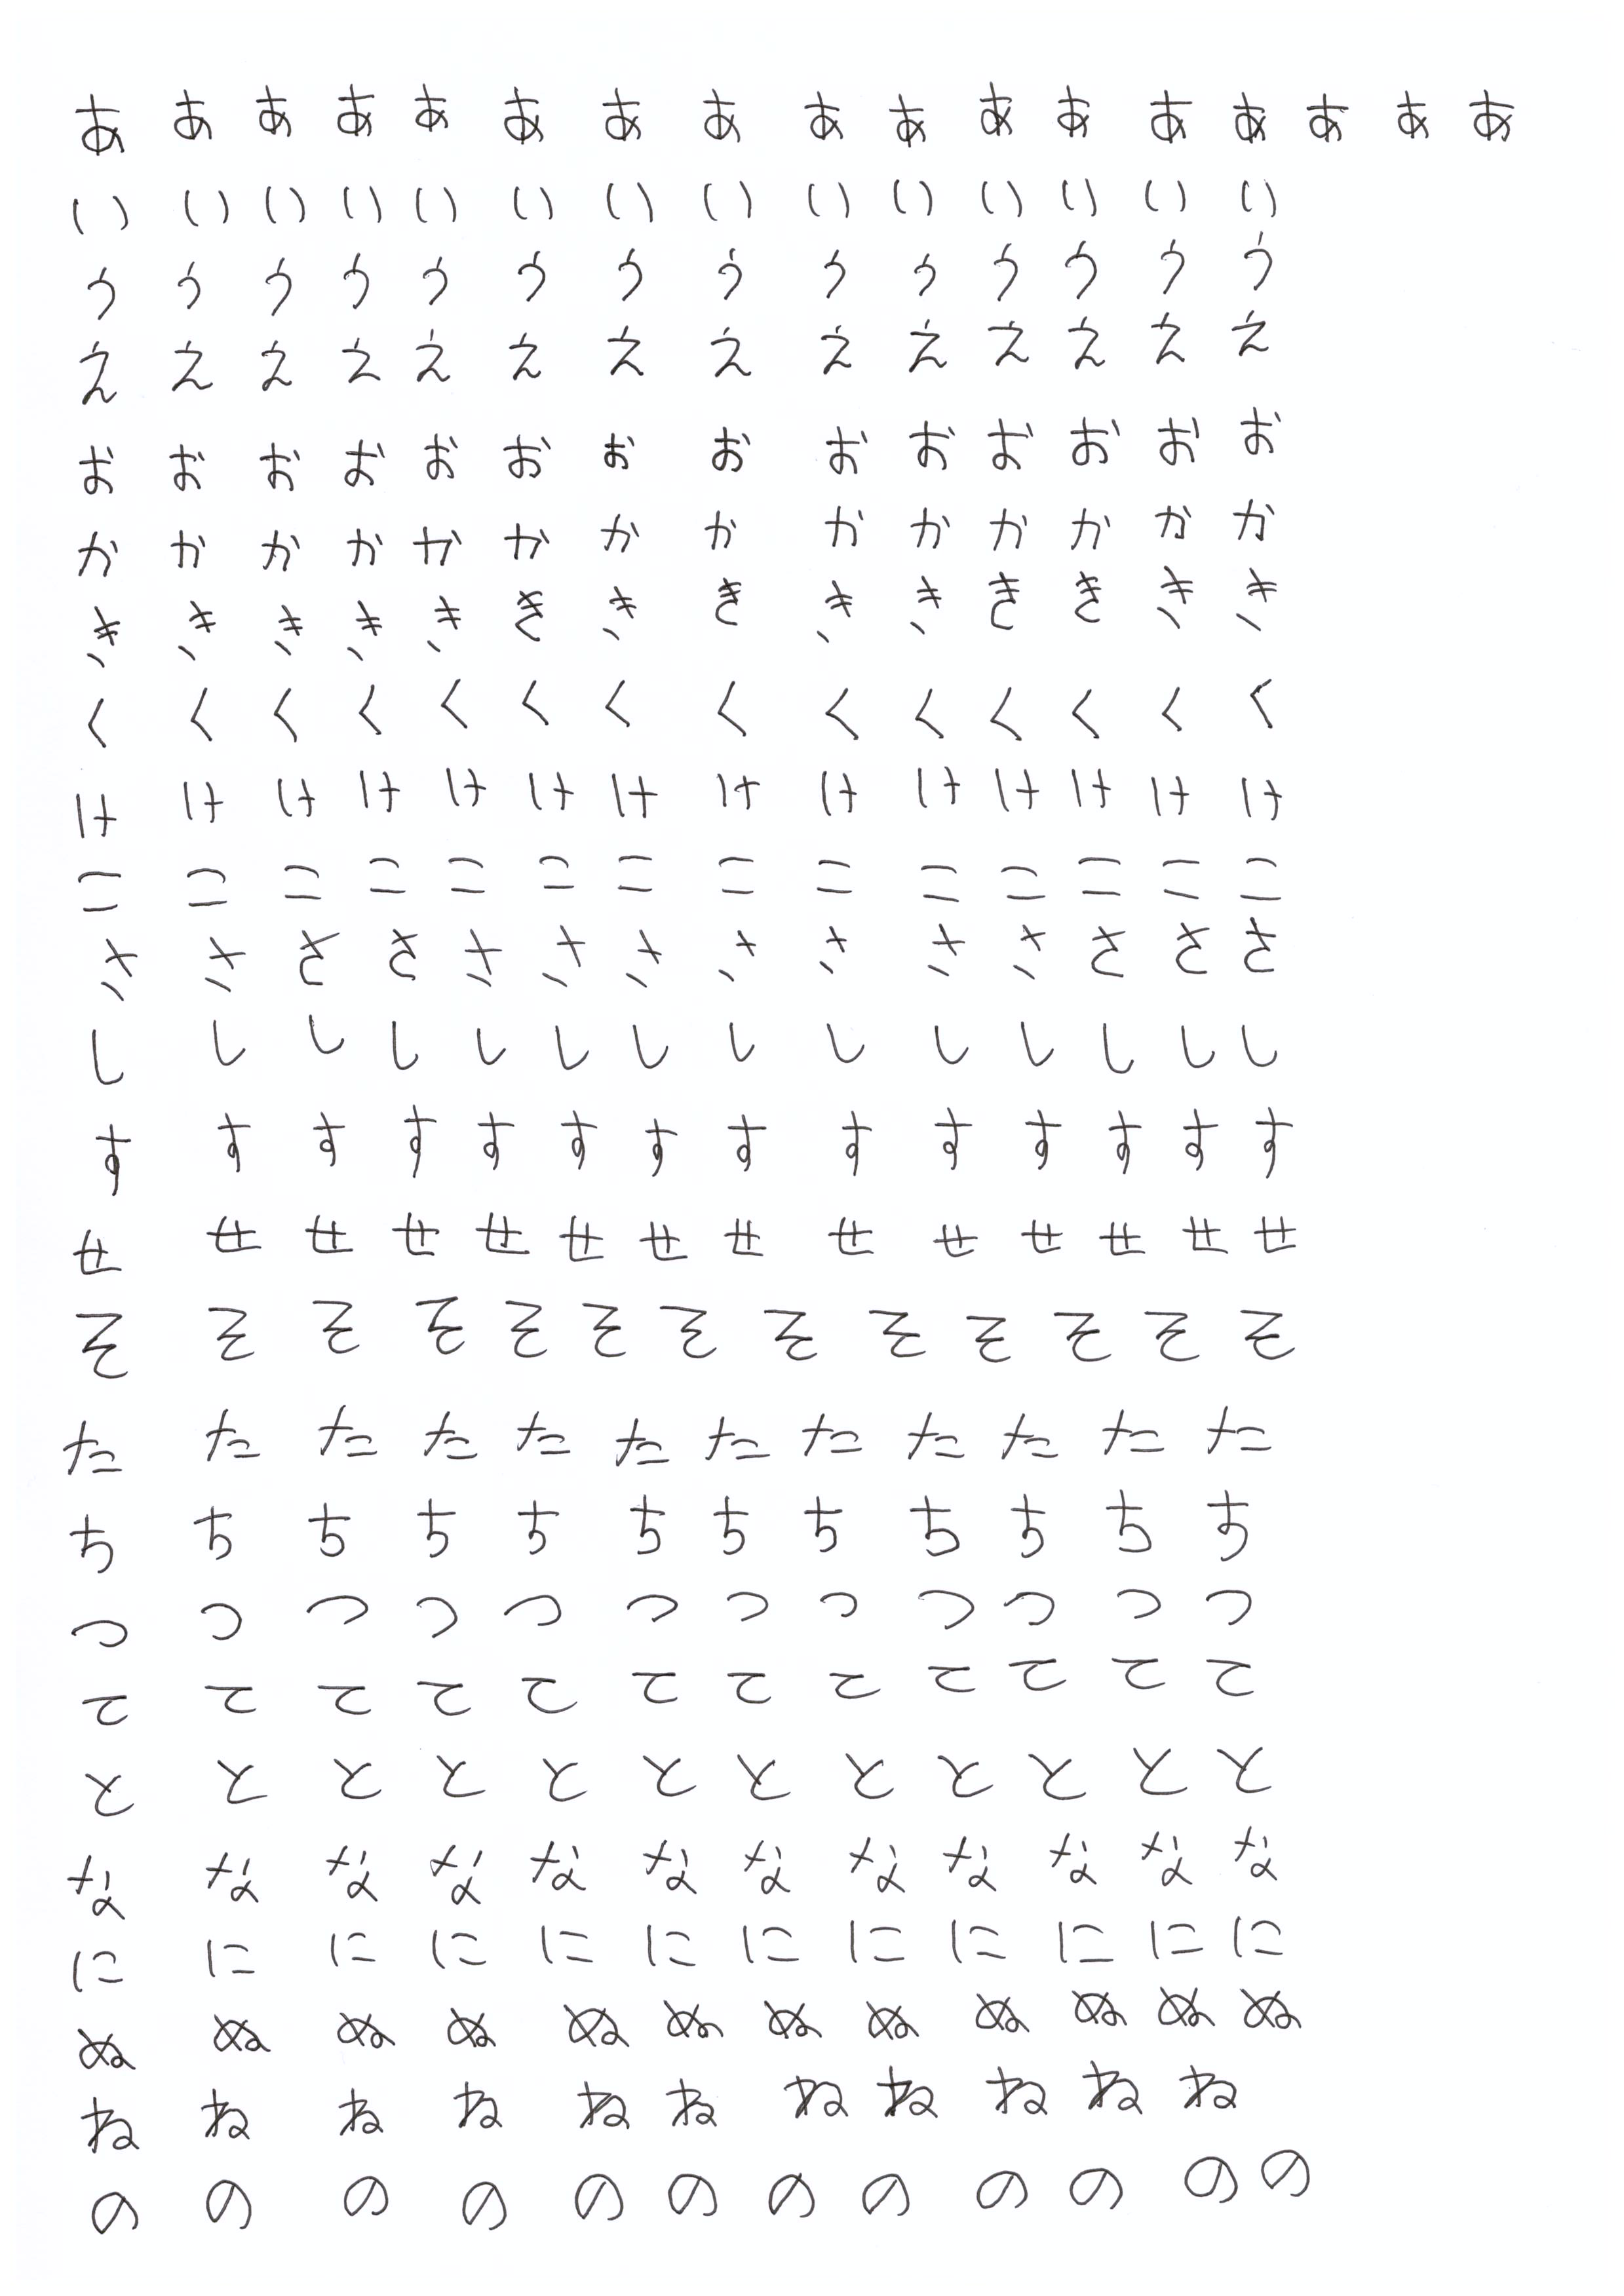 あ あ あ あ あ あ あ あ あ あ あ あ あ あ あ あ あ
い い い い い い い い い い い い い い
う う う う う う う う う う う う う う
え え え え え え え え え え え え え え
お お お お お お お お お お お お お お
か か か か か か か か か か か か か か
き き き き き き き き き き き き き き
く く く く く く く く く く く く く く
け け け け け け け け け け け け け け
こ こ こ こ こ こ こ こ こ こ こ こ こ こ
さ さ さ さ さ さ さ さ さ さ さ さ さ さ
し し し し し し し し し し し し し し
す す す す す す す す す す す す す す
せ せ せ せ せ せ せ せ せ せ せ せ せ せ
そ そ そ そ そ そ そ そ そ そ そ そ そ
た た た た た た た た た た た た
ち ち ち ち ち ち ち ち ち ち ち ち
つ つ つ つ つ つ つ つ つ つ つ つ
て て て て て て て て て て て て
と と と と と と と と と と と と
な な な な な な な な な な な な
に に に に に に に に に に に に
ぬ ぬ ぬ ぬ ぬ ぬ ぬ ぬ ぬ ぬ ぬ ぬ
ね ね ね ね ね ね ね ね ね ね ね
の の の の の の の の の の の の